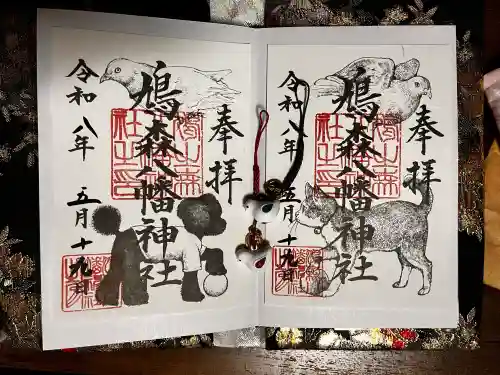 奉拝
鳩森八幡神社
令和八年 五月十九日
奉拝
鳩森八幡神社
令和八年 五月十九日